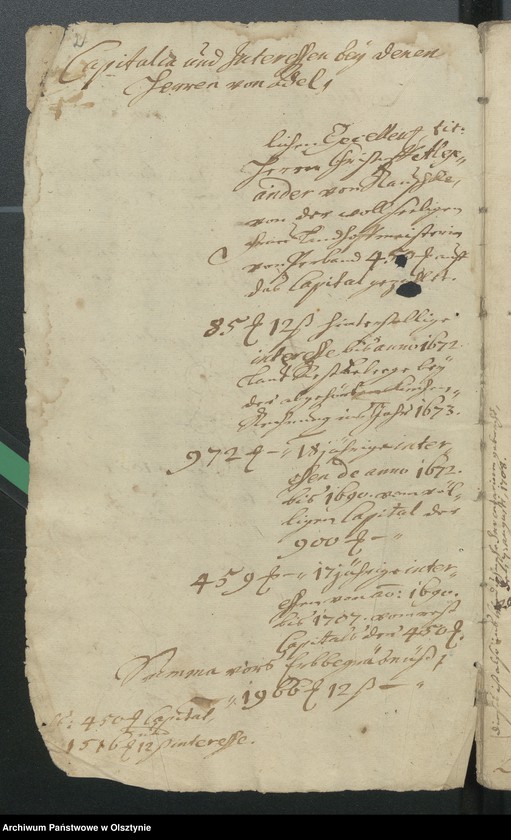 Capitalia und Interessen bey denen
Herren von Adel,
lichen Excellentz tit:
Herrn Christoff Alex-
ander von Rauschke,
von der wollseeligen
Frau Landhoffmeisterin
von 450 f auff
das Capital gezahlet.
85 f 12 ß hinterstellige
interesse bis anno 1672.
laut beylage bey
der Kirchen-
Rechnung ins Jahr 1673.
972 f – „ 18 jährige inter-
essen de anno 1672.
bis 1690. vom völ-
ligen Capital der
900 f – „
459 f – „ 17 jährige inter-
essen von ao: 1690.
bis 1707. vom rest
Capital der 450 f.
Summa vors Erbbegräbnüß,
„ 1966 f 12 ß – „
450 f Capital,
und
1516 f 12 ß interesse.
Archiwum Państwowe w Olsztynie